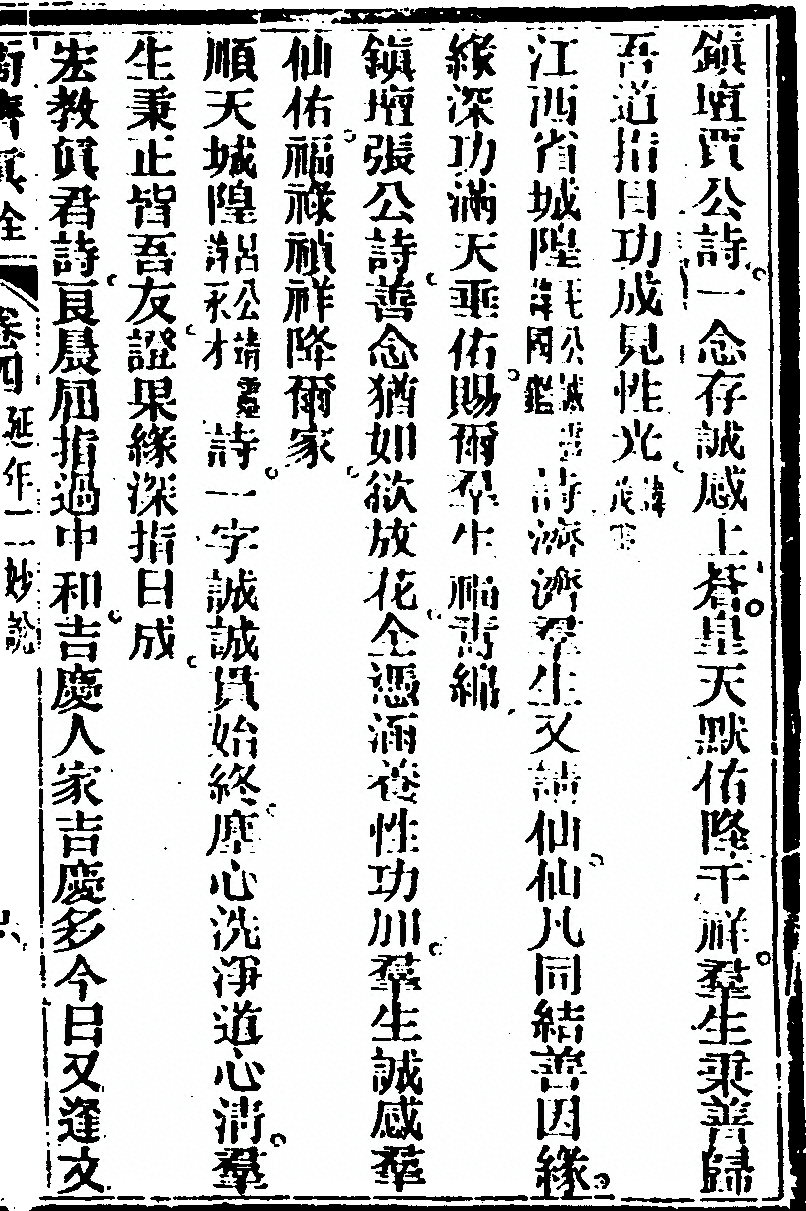 鎮壇賈公詩一念存誠感上蒼皇天默佑降千祥羣生秉善歸
吾道指日功成見性光諱
江西省城隍毛公誠諱國鑑詩濟濟羣生又請仙仙凡同結善因緣
緣深功滿天垂佑賜爾羣生福壽綿
鎮壇張公詩善念猶如欲放花全憑涵養性功加羣生誠感羣
仙佑福祿禎祥降爾家
順天城隍呂公靖靈諱永才詩一字誠誠貫始終塵心洗淨道心清羣
生秉正皆吾友證果緣深指日成
宏教眞君詩良晨屈指過中和吉慶人家吉慶多今日又逢文
卷四 延年 妙說